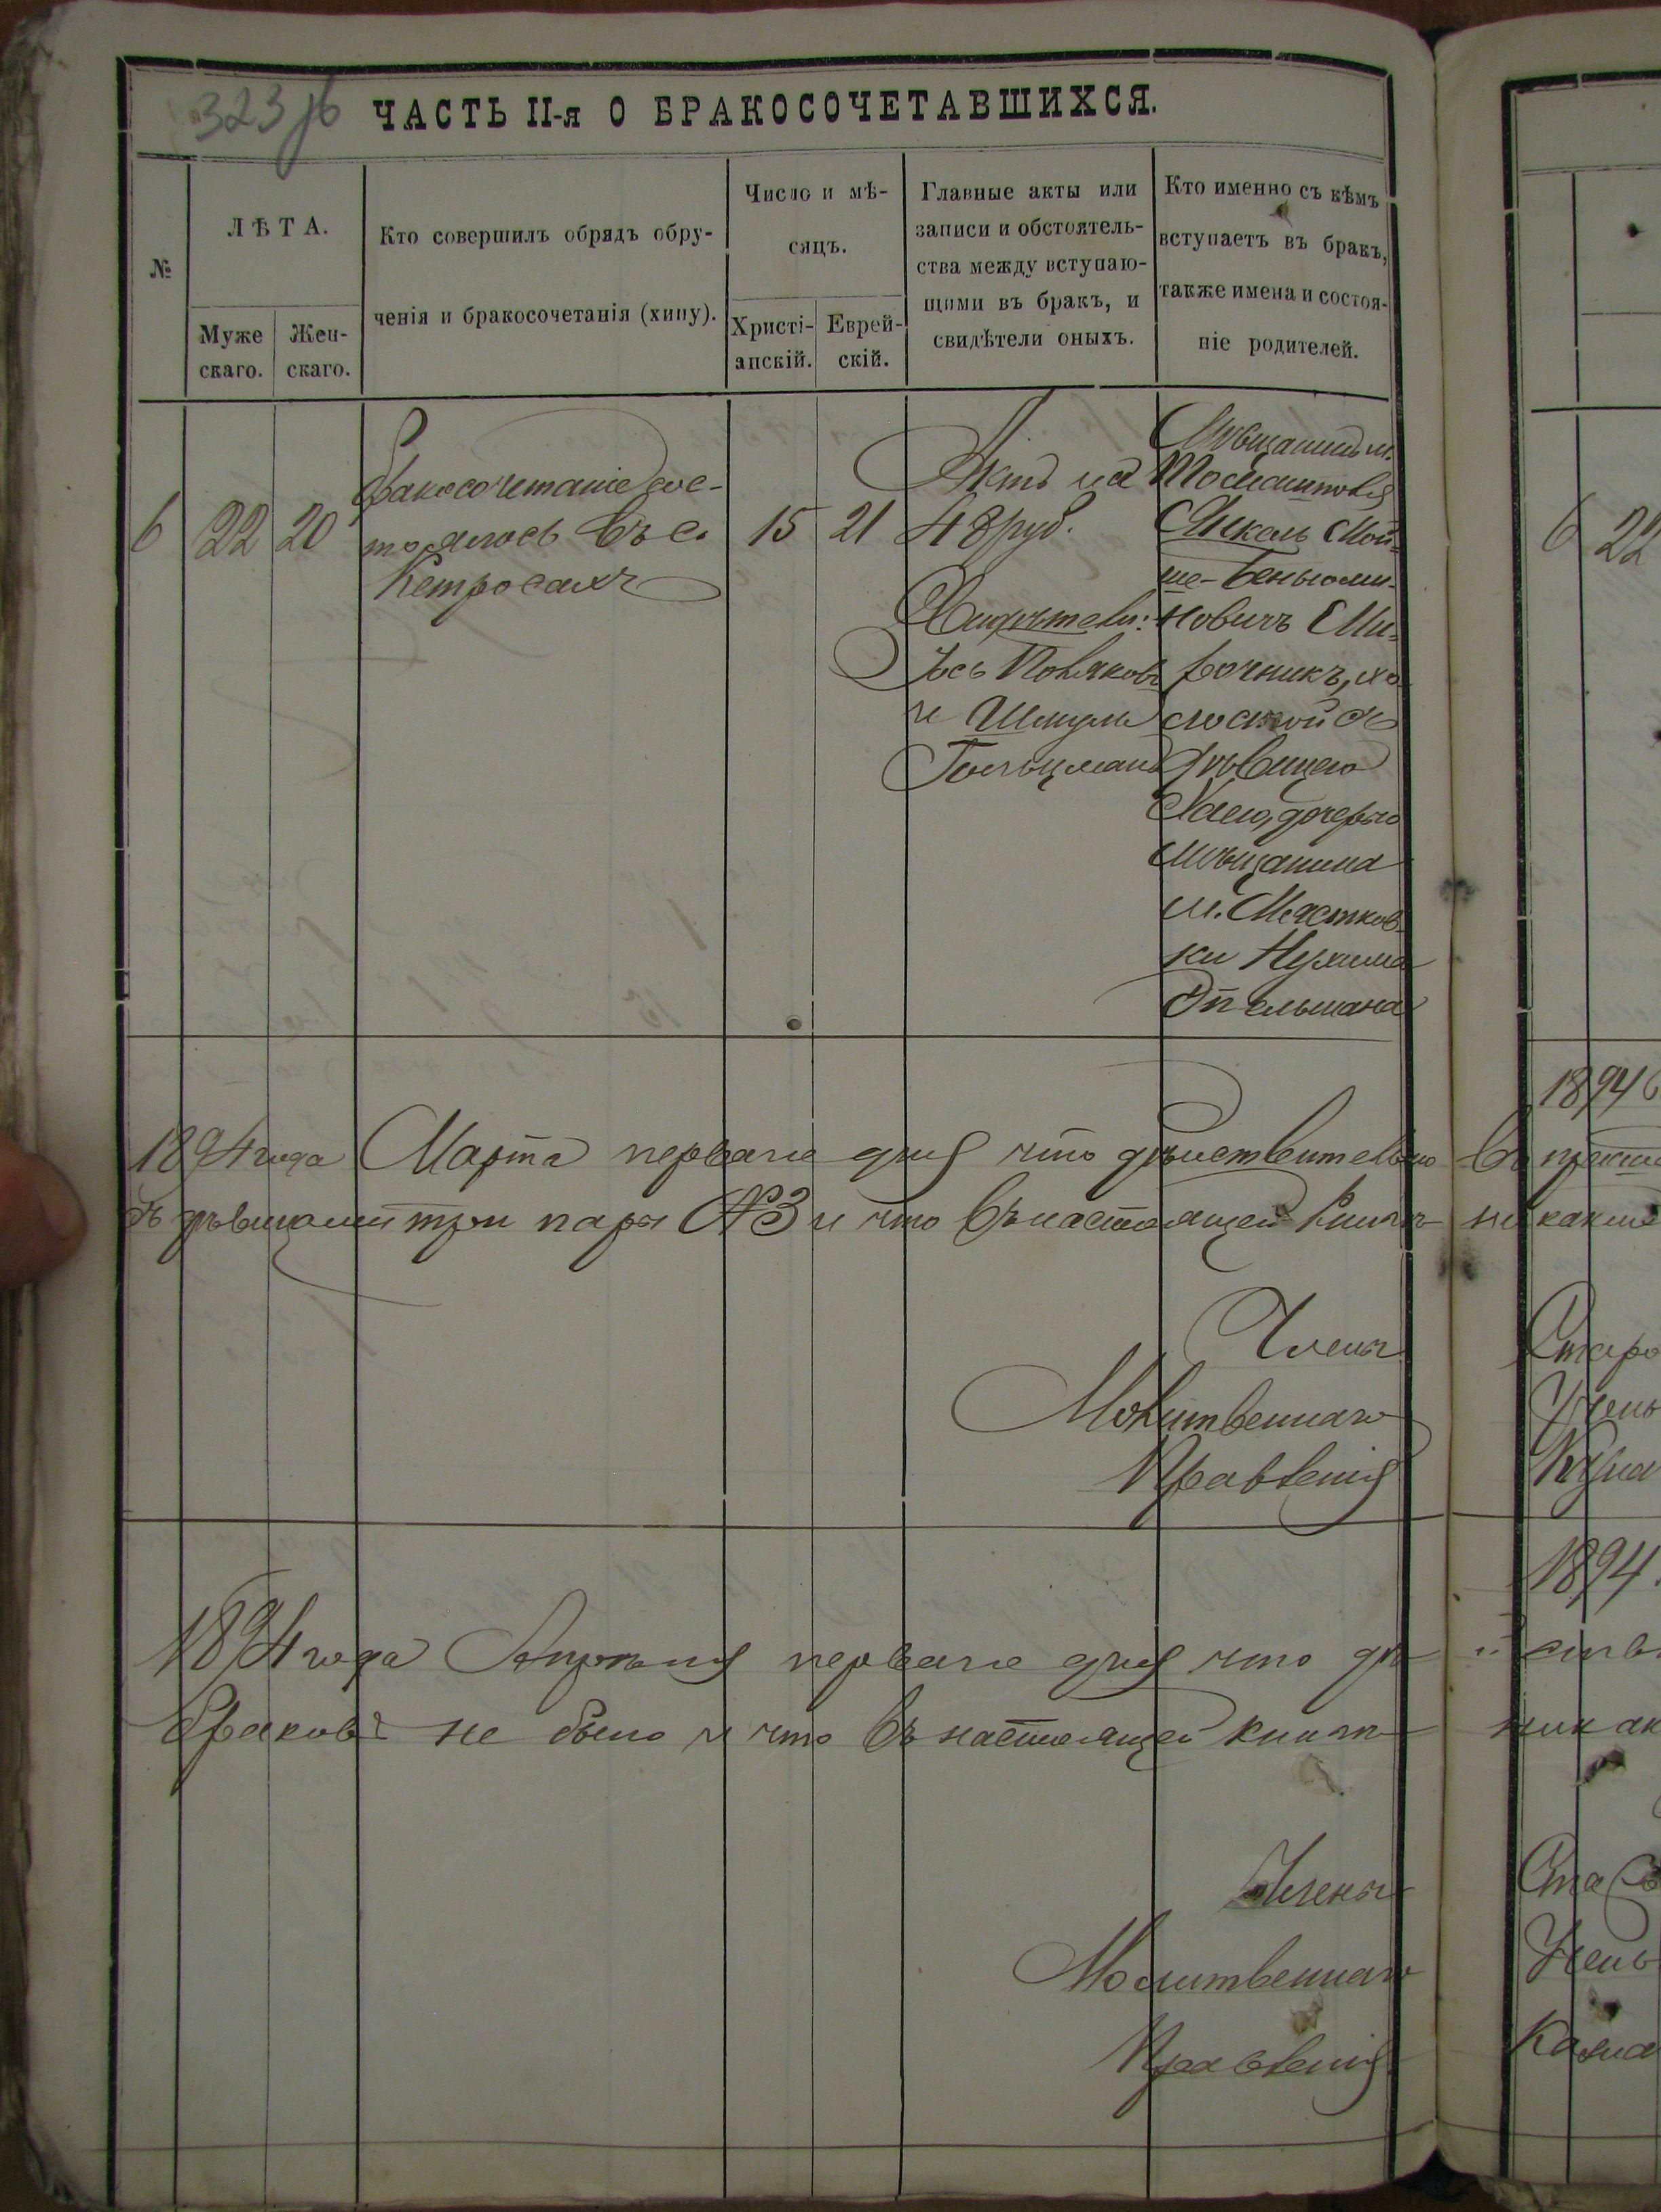 323 об
ЧАСТЬ II-я О БРАКОСОЧЕТАВШИХСЯ.
№
ЛѢТА.
Муже
скаго.
Жен-
скаго.
Кто совершилъ обрядъ обру-
ченія и бракосочетанія (хипу).
Число и мѣ-
сяцъ.
Христі-
анскій.
Еврей-
скій.
Главные акты или
записи и обстоятель-
ства между вступаю-
щими въ бракъ, и
свидѣтели оныхъ.
Кто именно съ кѣмъ
вступаетъ въ бракъ,
также имена и состоя-
ніе родителей.
6
22
20
Бракосочетаніе сос-
тоялось въ с.
Кетросахъ
15
21
Актъ на
48 руб.
Свидѣтели:
Іось Поляковъ
и Шмуль
Гольцманъ
Мѣщанинъ м.
Томашполя
Сикель Мой-
ше-Беньоми-
новичъ Ми-
рочникъ, хо-
лостой съ
дѣвицею
Хаею, дочерью
мѣщанина
м. Мястков-
ки Нухима
Эпельмана
1894 года Марта перваго дня что дѣйствительно
съ дѣвицами три пары №3 и что въ настоящей книгѣ
Члены
Молитвеннаго
Правленія
1894 года Апрѣля перваго дня что дѣ
браковъ не было и что въ настоящей книгѣ
Члены
Молитвеннаго
Правленія
6
22
1894
никакихъ
Старо
Учены
Казна
1894.
йств
никак
Ста
Учены
Казна